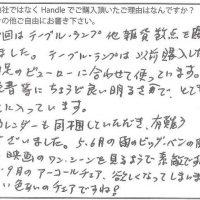 社ではなくHandleでご購入頂いたご理由はなんですか?
の他ご自由にお書き下さい。
回はテーブルランプ他雑貨数点を購
ました。テーブルランプは以前購入した
足のビューローに合わせて使っています。
書等にちょうど良い明るさで、とても
に入っています。
カレンダーも同梱していただき、有難う
ございました。5.6月の雨のビッグ・ベンの
映画のワンシーンを見るようで素敵です
9月のアーコールチェア、欲しくなってしまいま
い色あいのチェアですね!